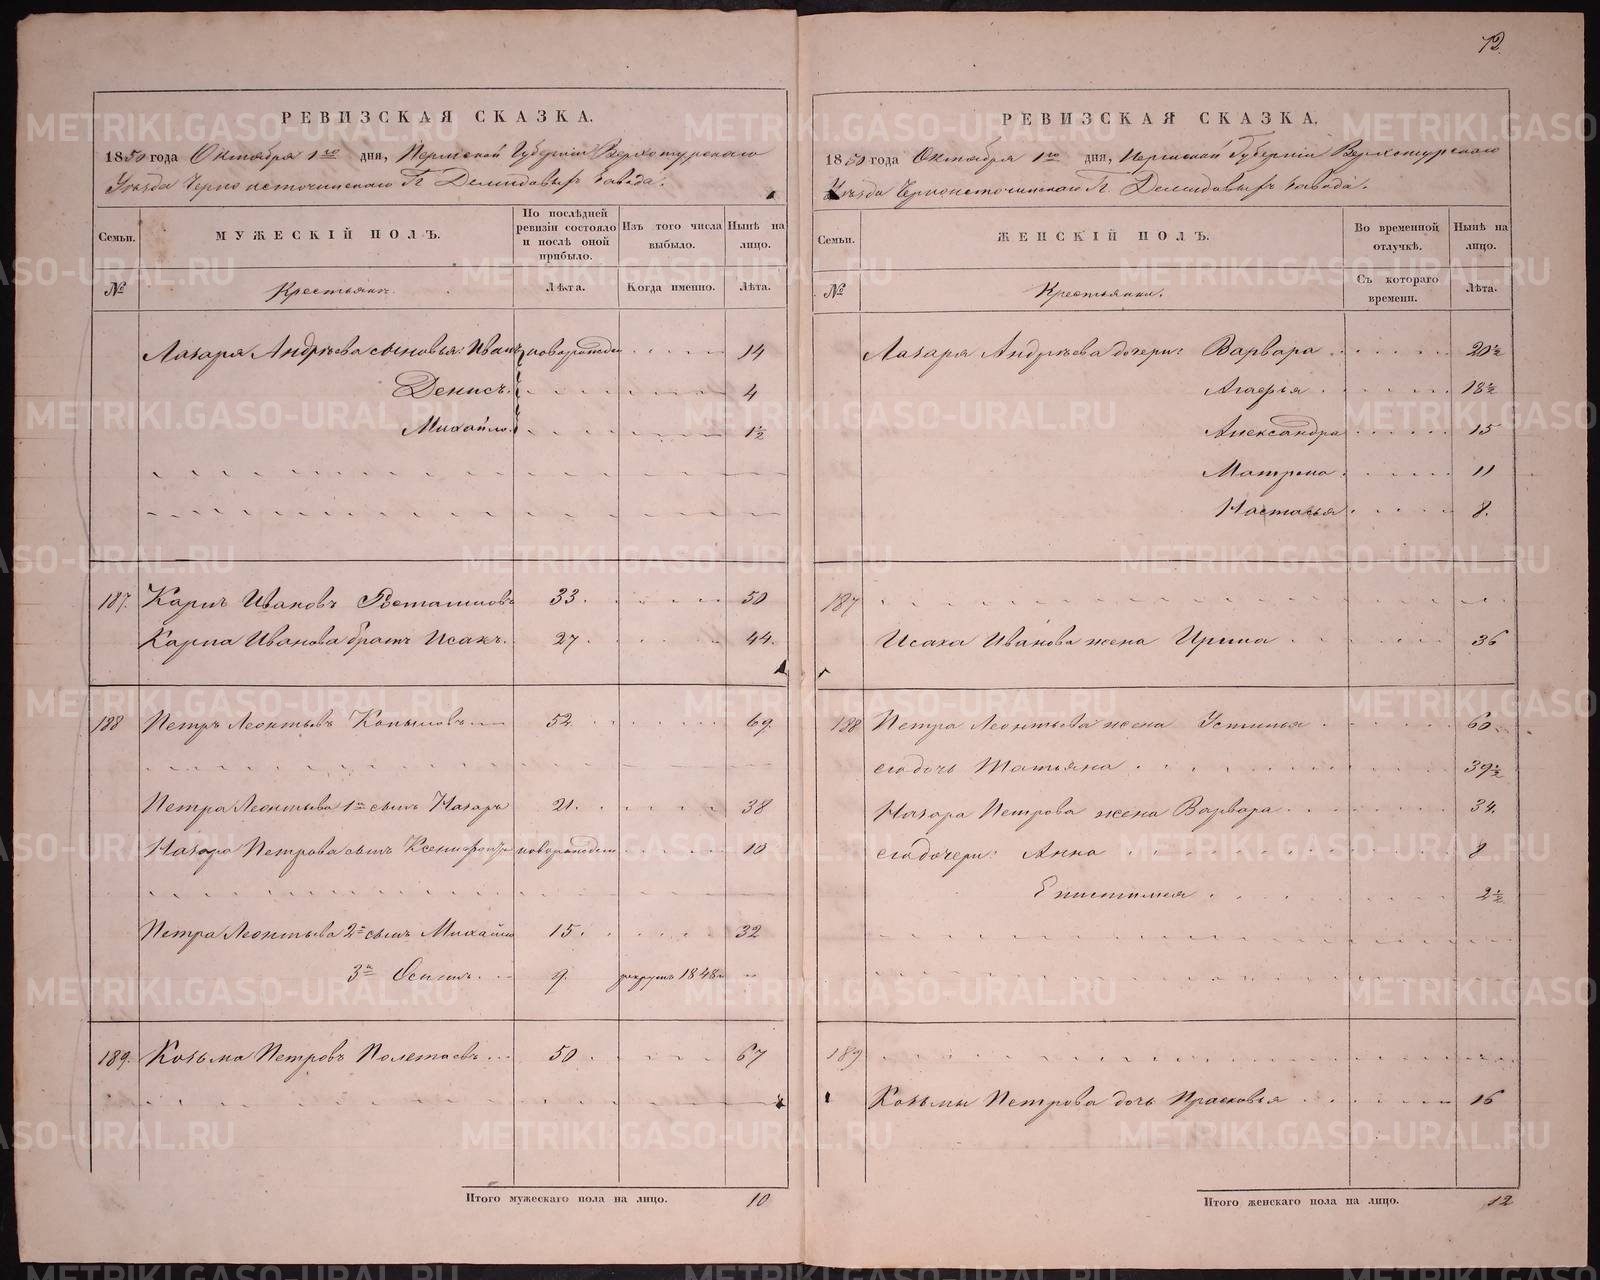 РЕВИЗСКАЯ СКАЗКА.
1850 года Октября 1го дня, Пермской Губернiи Верхотурскаго
Уѣзда Черноисточинскаго Гг. Демидовыхъ Завода.
Семьи.
МУЖЕСКIЙ ПОЛЪ.
По послѣдней ревизiи состояло и послѣ оной прибыло.
Изъ того числа выбыло.
Нынѣ на лицо.
№
Крестьяне.
Лѣта.
Когда именно.
Лѣта.
Лазаря Андрѣева сыновья: Иванъ новорожден 14
Денисъ 4
Михайло 1½
187. Карпъ Ивановъ 33. 50
Карпа Иванова братъ Исакъ. 27. 44.
188 Петръ Леонтьевъ Копыловъ 52. 69.
Петра Леонтьева 1й сынъ Назаръ 21. 38
Назара Петрова сынъ Ксенофонтъ новорожден 10
Петра Леонтьева 2й сынъ Михайло 15. 32
3й Осипъ. 9. рекрутъ 1848
189. Козьма Петровъ Полетаевъ 50. 67
Итого мужескаго пола на лицо. 10
72.
РЕВИЗСКАЯ СКАЗКА.
1850 года Октября 1го дня, Пермской Губернiи Верхотурскаго
Уѣзда Черноисточинскаго Гг. Демидовыхъ Завода.
Семьи.
ЖЕНСКIЙ ПОЛЪ.
Во временной отлучкѣ.
Нынѣ на лицо.
№
Крестьянки.
Съ котораго времени.
Лѣта.
Лазаря Андрѣева дочери: Варвара 20½
Агафья 18½
Александра 15
Матрена 11
Настасья 8.
187
Исака Иванова жена Ирина 36
188 Петра Леонтьева жена Устинья 60.
его дочь Татьяна 39½
Назара Петрова жена Варвара 34.
его дочери: Анна 8
Епистимия 2½
189
Козьмы Петрова дочь Прасковья 16
Итого женскаго пола на лицо. 12
METRIKI.GASO-URAL.RU